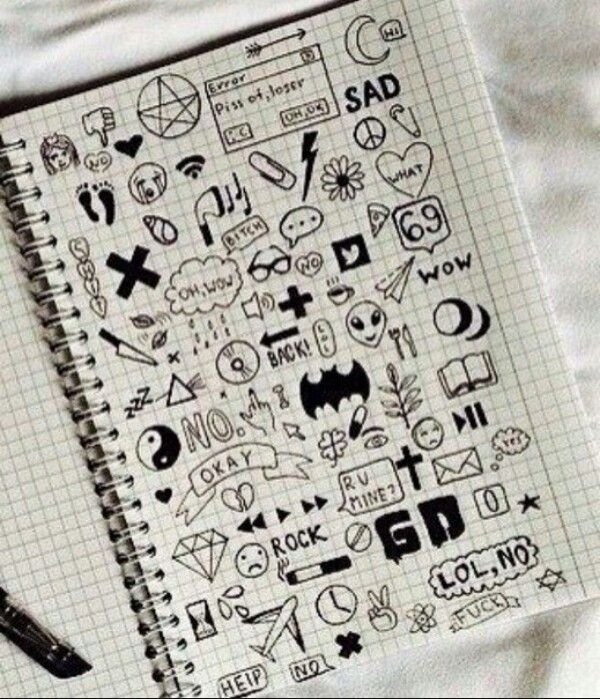 HI
Error
Piss of, loser
OH, OK
SAD
NO
WHAT
BITCH
69
SHIT
OH, WOW!
NO
WOW
BACK!
LOL
zzz
NO.
OKAY
YES
R U
MINE?
ROCK
GD
0
LOL, NO
FUCK
HELP
NO